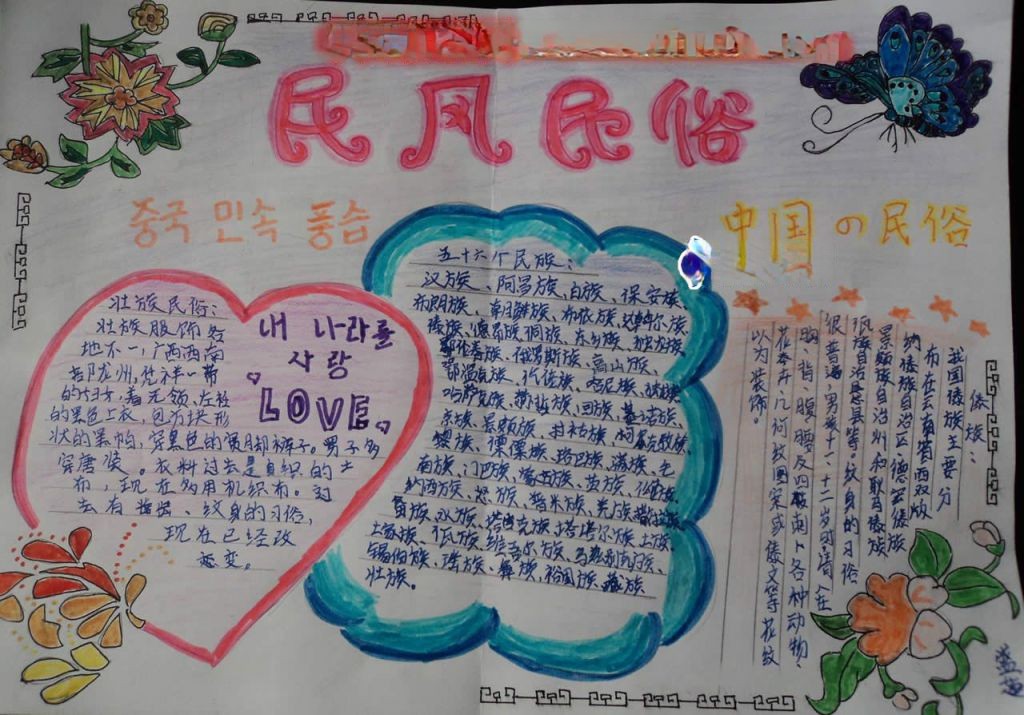 民风民俗
중국 민속 풍습
中国の民俗
壮族民俗:
壮族服饰各
地不一,广西西南
部龙州,凭祥一带
的妇女,着无领,左衽
的黑色上衣,包方块形
状的黑帕,穿黑色的宽脚裤子。男子多
穿唐装。衣料过去是自织的土
布,现在多用机织布。过
去有 纹身的习俗,
现在已经改
变。
내 나라를
사랑
LOVE
五十六个民族:
汉族、阿昌族、白族、保安族、
布朗族、布依族、达斡尔族
傣族、德昂族、侗族、东乡族、独龙族
鄂伦春族、俄罗斯族、高山族、
仡佬族、哈尼族、
哈萨克族、赫哲族、回族、基诺族、
京族、景颇族、拉祜族、
黎族、傈僳族、珞巴族、满族、毛
南族、门巴族、蒙古族、苗族、仫佬族
纳西族、怒族、普米族、羌族、
畲族、水族、塔吉克族、塔塔尔族、土族、
土家族、佤族、维吾尔族、乌孜别克族、
锡伯族、瑶族、彝族、裕固族、藏族
壮族。
傣族:
我国傣族主要分
布在云南省西双版
纳傣族自治区、德宏傣族
景颇族自治州和
自治县等,纹身的习俗
很普遍,男孩十一、十二岁时,请人在
胸、背、腹、腰及四肢 各种动物、
花卉、几何纹图案或傣文等花纹
以为装饰。